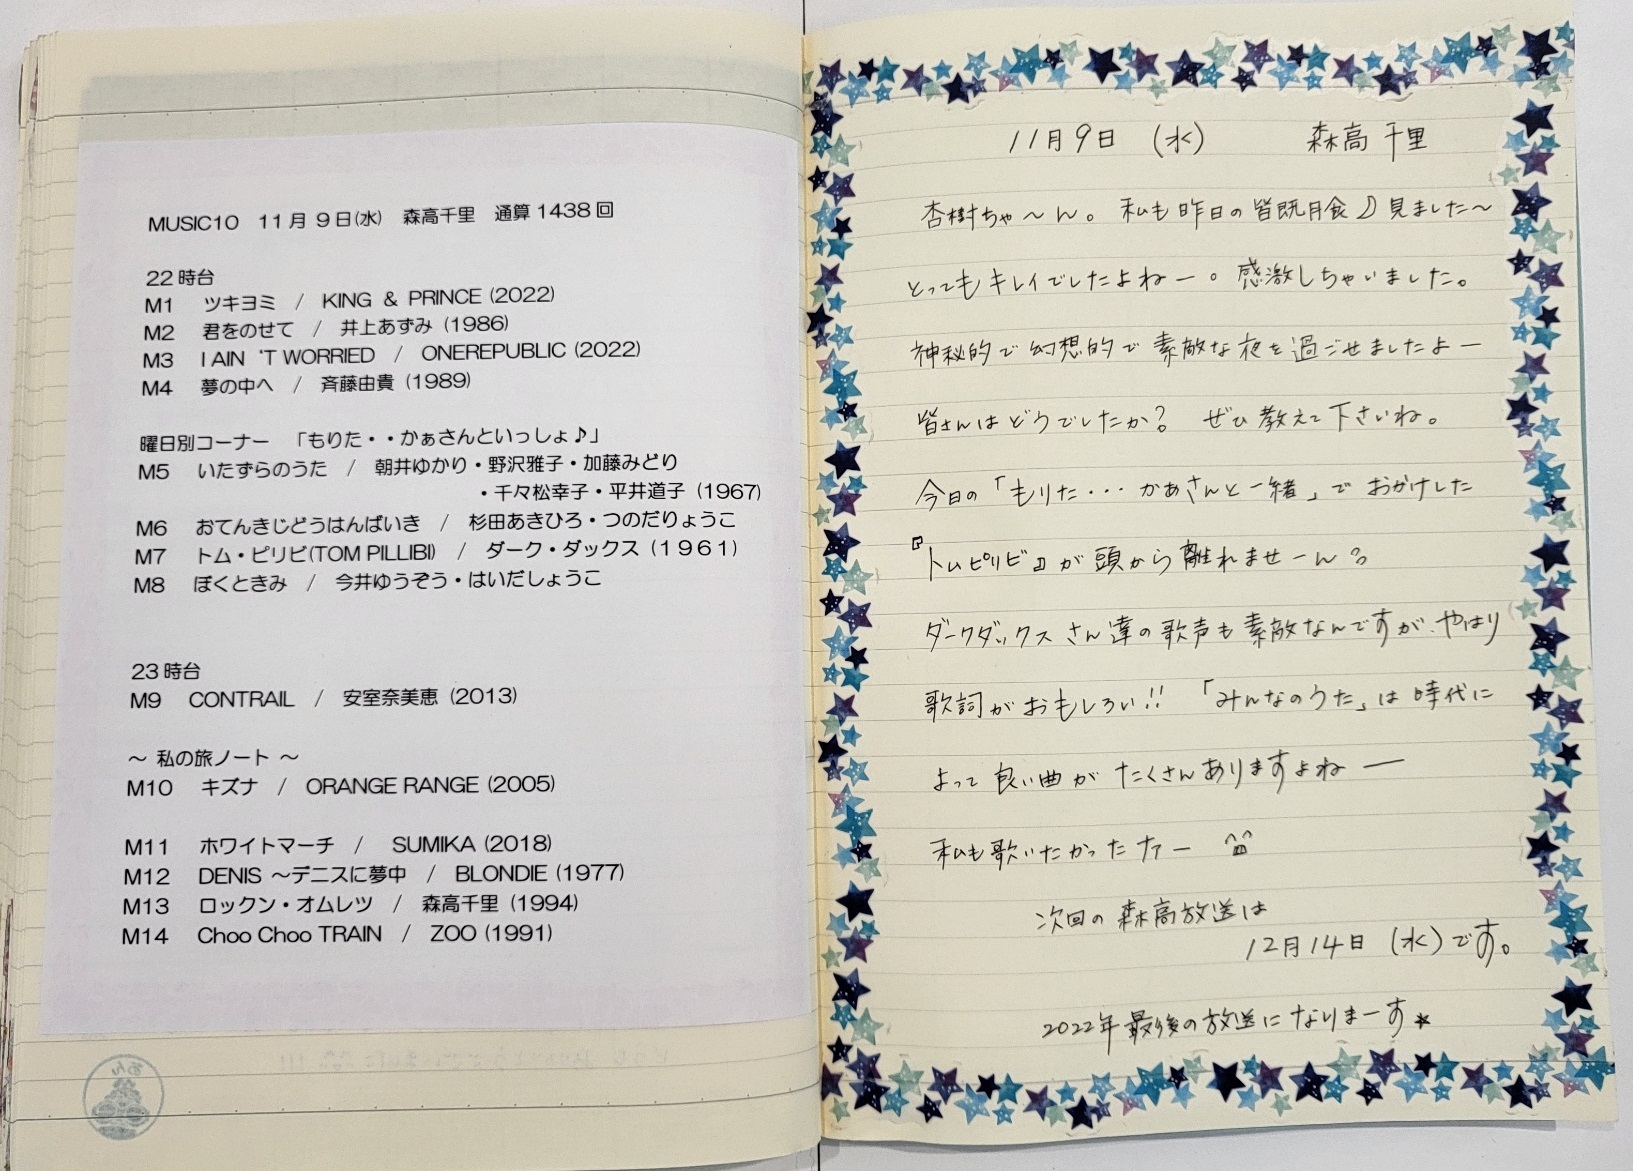 MUSIC10　11月 9日(水)　森高千里　通算1438回
22時台
M1　ツキヨミ　/　KING ＆ PRINCE (2022)
M2　君をのせて　/　井上あずみ (1986)
M3　I AIN ‘T WORRIED　/　ONEREPUBLIC (2022)
M4　夢の中へ　/　斉藤由貴 (1989)
曜日別コーナー　「もりた・・かぁさんといっしょ♪」
M5　いたずらのうた　/　朝井ゆかり・野沢雅子・加藤みどり
・千々松幸子・平井道子 (1967)
M6　おてんきじどうはんばいき　/　杉田あきひろ・つのだりょうこ
M7　トム・ピリビ(TOM PILLIBI)　/　ダーク・ダックス (１９６１)
M8　ぼくときみ　/　今井ゆうぞう・はいだしょうこ
23時台
M9　CONTRAIL　/　安室奈美恵 (2013)
～ 私の旅ノート ～
M10　キズナ　/　ORANGE RANGE (2005)
M11　ホワイトマーチ　/　SUMIKA (2018)
M12　DENIS ～デニスに夢中　/　BLONDIE (1977)
M13　ロックン・オムレツ　/　森高千里 (1994)
M14　Choo Choo TRAIN　/　ZOO (1991)
あん
11月9日　(水)　　森高 千里
杏樹ちゃ〜ん。私も昨日の皆既月食♪見ました〜
とってもキレイでしたよねー。感激しちゃいました。
神秘的で幻想的で素敵な夜を過ごせましたよー
皆さんはどうでしたか？　ぜひ教えて下さいね。
今日の「もりた・・・かあさんと一緒」でおかけした
『トムピリビ』が頭から離れませーん。
ダークダックスさん達の歌声も素敵なんですが、やはり
歌詞がおもしろい!!　「みんなのうた」は時代に
よって良い曲がたくさんありますよねー
私も歌いたかったナァー
次回の森高放送は
12月14日 (水)です。
2022年最後の放送になりまーす☆